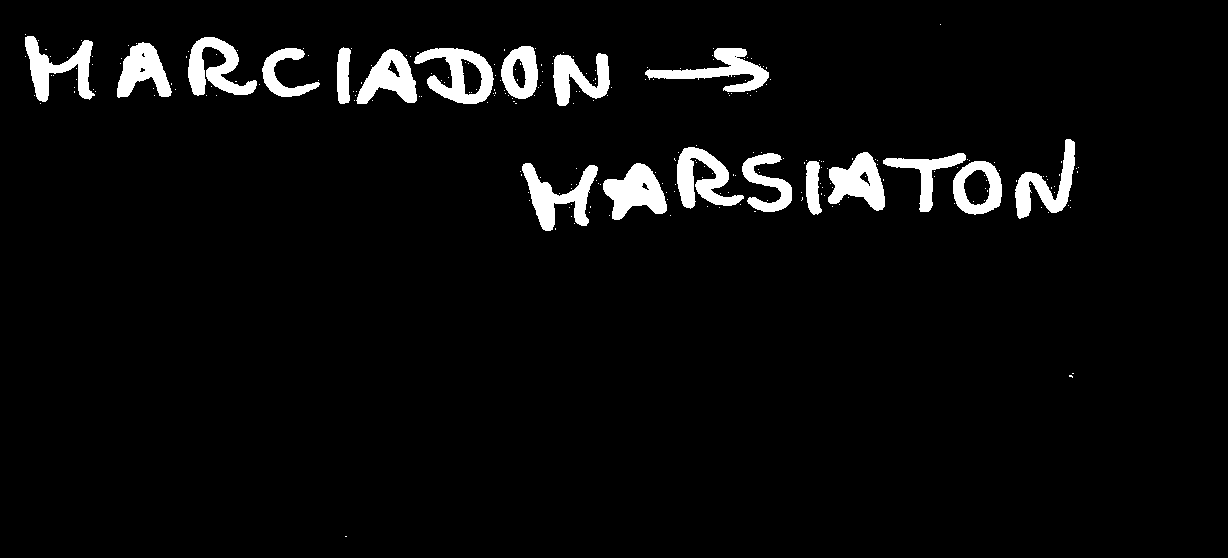 MARCIADON →
MARSIATON